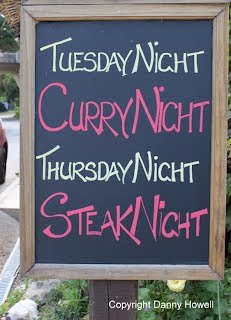 TUESDAY NIGHT
CURRY NIGHT
THURSDAY NIGHT
STEAK NIGHT
Copyright Danny Howell